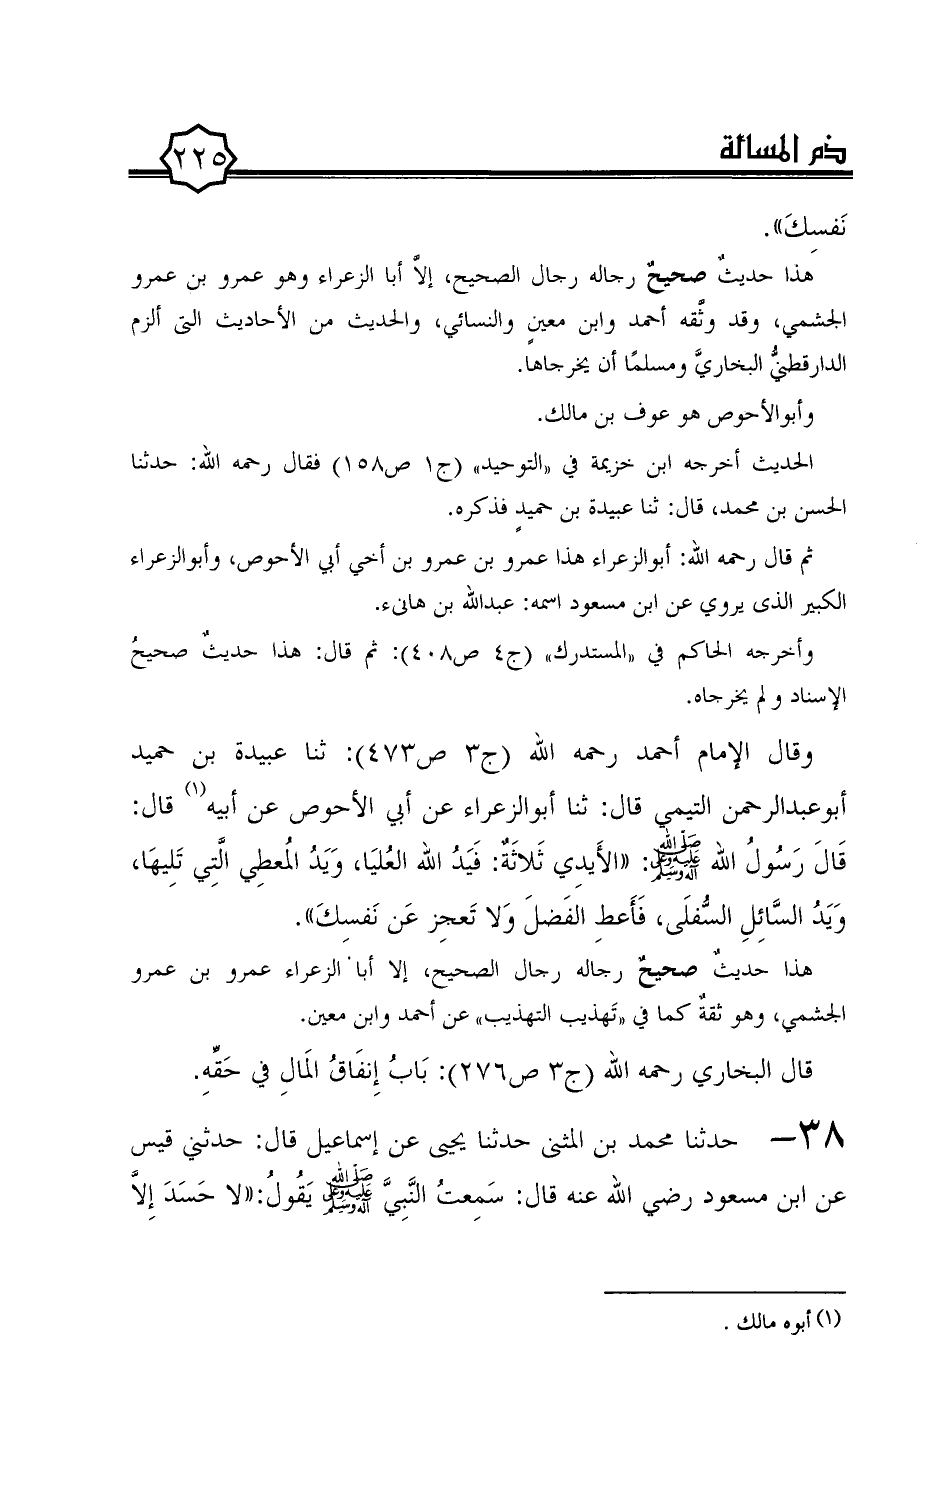 ذم المسألة
٢٢٥
نَفسِكَ».
هذا حديثٌ صحيحٌ رجاله رجال الصحيح، إلاَّ أبا الزعراء وهو عمرو بن عمرو
الجشمي، وقد وثَّقه أحمد وابن معينٍ والنسائي، والحديث من الأحاديث التي ألزم
الدارقطنيُّ البخاريَّ ومسلمًا أن يخرجاها.
وأبوالأحوص هو عوف بن مالك.
الحديث أخرجه ابن خزيمة في «التوحيد» (ج١ ص١٥٨) فقال رحمه الله: حدثنا
الحسن بن محمد، قال: ثنا عبيدة بن حميدٍ فذكره.
ثم قال رحمه الله: أبوالزعراء هذا عمرو بن عمرو بن أخي أبي الأحوص، وأبوالزعراء
الكبير الذى يروي عن ابن مسعود اسمه: عبدالله بن هانىء.
وأخرجه الحاكم في «المستدرك» (ج٤ ص٤٠٨): ثم قال: هذا حديثٌ صحيحُ
الإسناد و لم يخرجاه.
وقال الإمام أحمد رحمه الله (ج٣ ص٤٧٣): ثنا عبيدة بن حميد
أبوعبدالرحمن التيمي قال: ثنا أبوالزعراء عن أبي الأحوص عن أبيه(١) قال:
قَالَ رَسُولُ الله ﷺ: «الأَيدِي ثَلاثَةٌ: فَيَدُ الله العُليَا، وَيَدُ المُعطِي الَّتِي تَلِيهَا،
وَيَدُ السَّائِلِ السُّفلَى، فَأَعطِ الفَضلَ وَلا تَعجِز عَن نَفسِكَ».
هذا حديثٌ صحيحٌ رجاله رجال الصحيح، إلا أبا الزعراء عمرو بن عمرو
الجشمي، وهو ثقةٌ كما في «تَهذيب التهذيب» عن أحمد وابن معين.
قال البخاري رحمه الله (ج٣ ص٢٧٦): بَابُ إِنفَاقُ المَالِ في حَقِّهِ.
٣٨- حدثنا محمد بن المثنى حدثنا يحيى عن إسماعيل قال: حدثني قيس
عن ابن مسعود رضي الله عنه قال: سَمِعتُ النَّبِيَّ ﷺ يَقُولُ:«لا حَسَدَ إِلاَّ
(١) أبوه مالك .